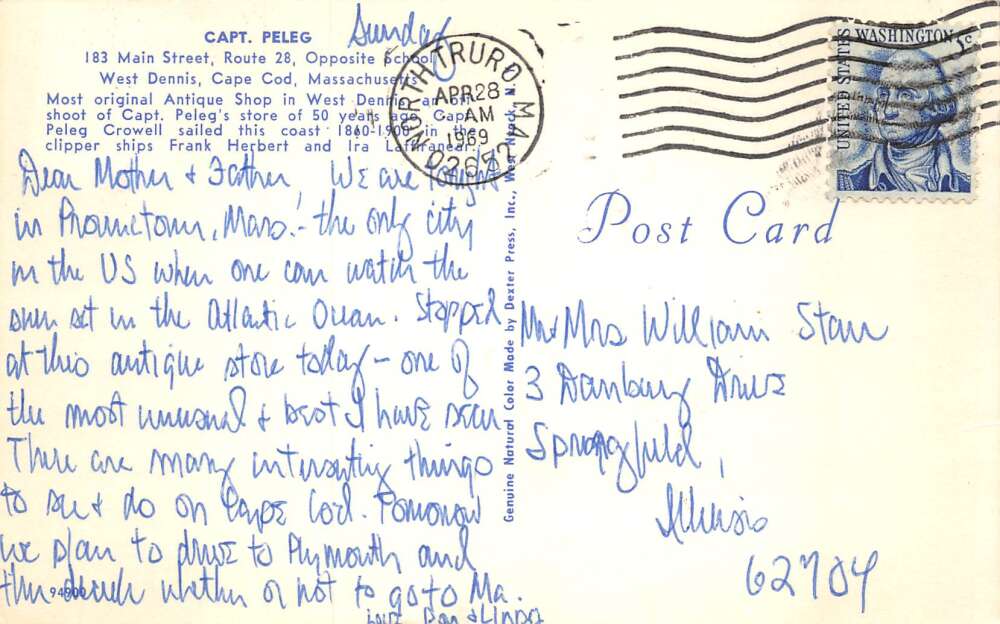 CAPT. PELEG
183 Main Street, Route 28, Opposite School
West Dennis, Cape Cod, Massachusetts
Most original Antique Shop in West Dennis, an off-
shoot of Capt. Peleg's store of 50 years ago. Capt.
Peleg Crowell sailed this coast 1860-1900 in the
clipper ships Frank Herbert and Ira
Sunday
NORTH TRURO MA
APR 28
AM
1969
02652
UNITED STATES
WASHINGTON 5c
Dear Mother & Father, We are tonight
in Provincetown, Mass. - the only city
in the US when one can watch the
sun set in the Atlantic Ocean. Stopped
at this antique store today - one of
the most unusual & best I have seen
There are many interesting things
to see & do on Cape Cod. Tomorrow
we plan to drive to Plymouth and
then decide whether or not to go to Ma.
Love Don & Linda
94900
Genuine Natural Color Made by Dexter Press, Inc., West Nyack, N.
Post Card
Mr & Mrs William Starr
3 Danbury Drive
Springfield,
Illinois
62704